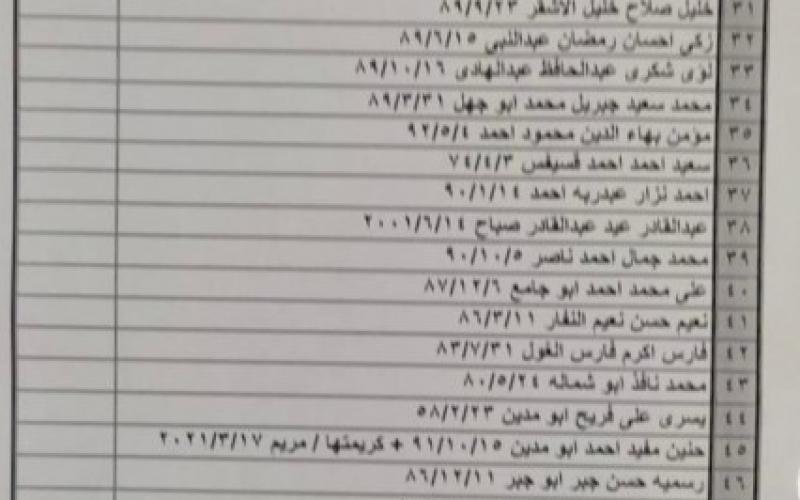 ٣١ خليل صلاح خليل الاشقر ٨٩/٩/٢٣
٣٢ زكى احسان رمضان عبدالنبى ٨٩/٦/١٥
٣٣ لؤى شكرى عبدالحافظ عبدالهادى ٨٩/١٠/١٦
٣٤ محمد سعيد جبريل محمد ابو جهل ٨٩/٣/٣١
٣٥ مؤمن بهاء الدين محمود احمد ٩٢/٥/٤
٣٦ سعيد احمد احمد فسيفس ٧٤/٤/٣
٣٧ احمد نزار عبدربه احمد ٩٠/١/١٤
٣٨ عبدالقادر عيد عبدالقادر صباح ٢٠٠١/٦/١٤
٣٩ محمد جمال احمد ناصر ٩٠/١٠/٥
٤٠ على محمد احمد ابو جامع ٨٧/١٢/٦
٤١ نعيم حسن نعيم النفار ٨٦/٣/١١
٤٢ فارس اكرم فارس الغول ٨٣/٧/٣١
٤٣ محمد نافذ ابو شماله ٨٠/٥/٢٤
٤٤ يسرى على فريح ابو مدين ٥٨/٢/٢٣
٤٥ حنين مفيد احمد ابو مدين ٩١/١٠/١٥ + كريمتها / مريم ٢٠٢١/٣/١٧
٤٦ رسميه حسن جبر ابو جبر ٨٦/١٢/١١